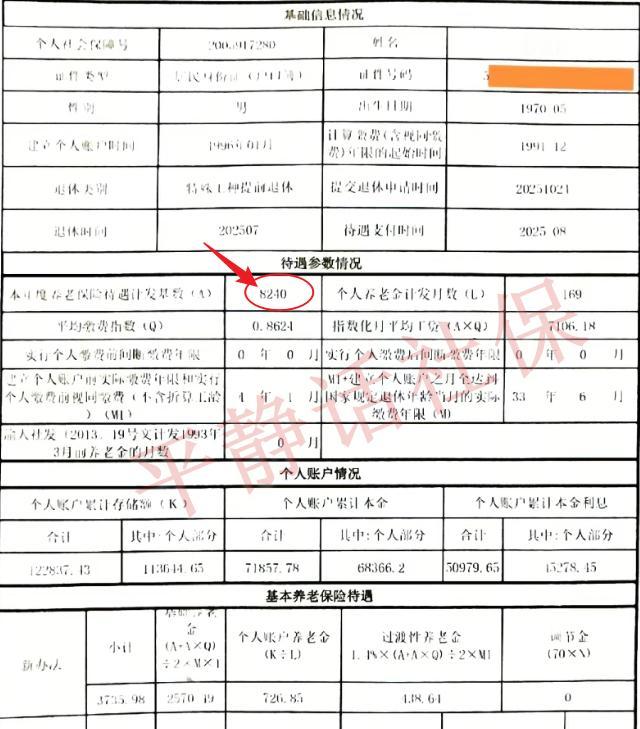 基础信息情况
个人社会保障号 2005917280 姓名
证件类型 居民身份证（户口簿） 证件号码 5
性别 男 出生日期 1970-05
建立个人账户时间 1996年01月 计算缴费(含视同缴
费)年限的起始时间 1991-12
退休类别 特殊工种提前退休 提交退休申请时间 20251021
退休时间 202507 待遇支付时间 2025-08
待遇参数情况
本年度养老保险待遇计发基数（A） 8240 个人养老金计发月数（L） 169
平均缴费指数（Q） 0.8624 指数化月平均工资（A×Q） 7106.18
实行个人缴费前间断缴费年限 0 年 0 月 实行个人缴费后间断缴费年限 0 年 0 月
建立个人账户前实际缴费年限和实行
个人缴费前视同缴费（不含折算工龄
）（M1） 4 年 1 月
M1+建立个人账户之月至达到
国家规定退休年龄当月的实际
缴费年限（M） 33 年 6 月
渝人社发（2013）19号文计发1993年
3月前养老金的月数 0 月
个人账户情况
个人账户累计存储额（K） 个人账户累计本金 个人账户累计本金利息
合计 其中:个人部分 合计 其中:个人部分 合计 其中:个人部分
122837.43 113644.65 71857.78 68366.2 50979.65 45278.45
基本养老保险待遇
新办法
小计
金
(A+A×Q)
÷2×M×1
个人账户养老金
(K÷L)
过渡性养老金
1.4%×(A+A×Q)÷2×M1
调节金
(70×N)
3735.98 2570.49 726.85 438.64 0
平静话社保